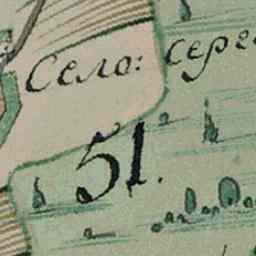 Село: сере
51.